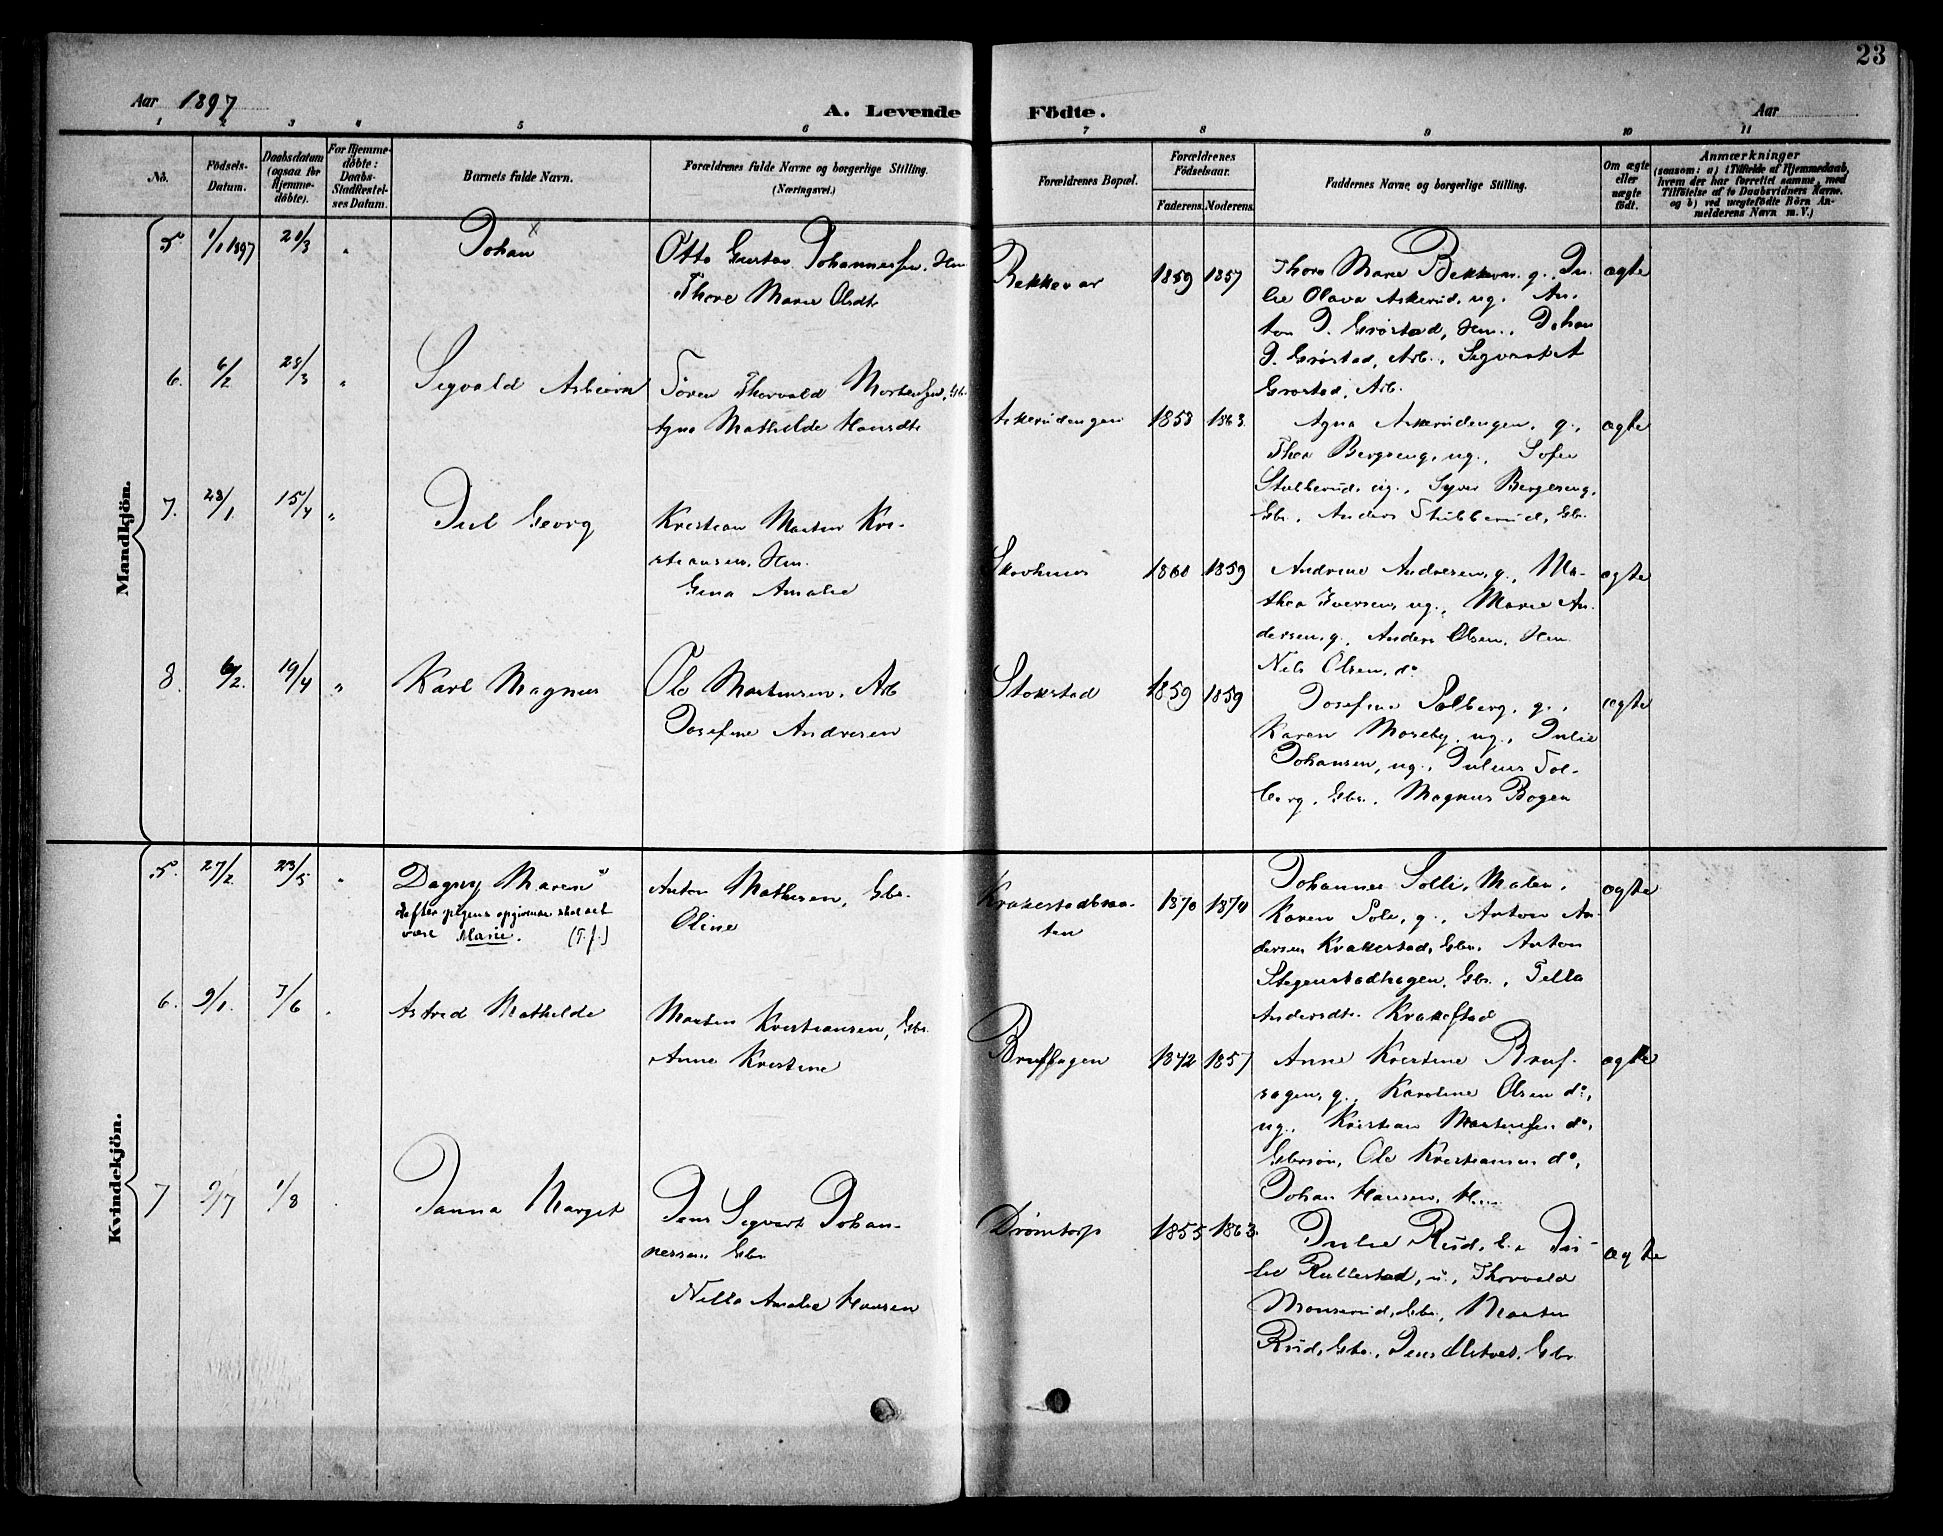 23
Aar 1897
A. Levende Födte.
Aar
1 2 3 4 5 6 7 8 9 10 11
No.
Födsels-Datum.
Daabsdatum (ogsaa for Hjemme-döbte).
For Hjemme-döbte: Daabs-Stadfæstel-ses Datum.
Barnets fulde Navn.
Forældrenes fulde Navne og borgerlige Stilling. (Næringsvei.)
Forældrenes Bopæl.
Forældrenes Födselsaar.
Faderens. Moderens.
Faddernes Navne og borgerlige Stilling.
Om ægte eller uægte født.
Anmærkninger
(saasom: a) i Tilfælde af Hjemmedaab, hvem der har forrettet samme, med Tilföielse af to Daabsvidners Navne. og b) ved uægtefödte Börn An-melderens Navn m. V.)
Mandkjön.
5. 1/1 1897 21/3 " Johan x
Otto Gustav Johannessen, Hm
Thore Marie Olsdt.
Bekkevar 1859 1857
Thora Marie Bekkevar, g., Ju-
lie Olava Askerud, ug., An-
ton J. Grøstad, Hm., Johan
J. Grøstad, Arb., Sigvart A
Grøstad, Arb.
ægte
6. 6/2 28/3 " Sigvald Asbiørn
Søren Thorvald Mortensen, Gb.
Agna Mathilde Hansdt.
Askerudengen 1858 1863.
Agna Askerudengen, g.,
Thea Bergseng, ug., Sofie
Stubberud, ug., Syver Bergseng,
Gbr., Anders Stubberud, Gbr.
ægte
7. 23/1 15/4 " Jul Georg
Kristian Martin Kri-
stiansen, Hm.
Gina Amalie
Skovhuus 1860 1859
Andrine Andresen, g., Ma-
thea Iversen, ug., Marie An-
dersen, g., Anders Olsen, Hm.
Nils Olsen, do
ægte
8. 6/2. 19/4 " Karl Magnus
Ole Martinsen, Arb
Josefine Andresen
Stokstad 1859 1859
Josefine Solberg, g.,
Karen Moseby, ug., Julie
Johansen, ug., Julius Sol-
berg, Gbr., Magnus Bogen
ægte
Kvindekjön.
5. 27/2 23/5 " Dagny Maren
efter pigens opgivende skal det
være Marie. (T.f.)
Anton Mathisen, Gbr.
Oline
Krakestadbraa-
ten
1870 1874
Johannes Solli, Maler,
Karen Sole, g., Anton An-
dersen Krakestad, Gbr., Anton
Stegenstadhagen, Gbr., Tella
Andersdt. Krakestad
ægte
6. 9/1. 7/6 " Astrid Mathilde
Martin Kristiansen, Gbr.
Anne Kristine
Brufsagen 1872 1857
Anne Kristine Bruf-
sagen, g., Karoline Olsen do,
ug., Kristian Martinsen do,
Gbrsøn, Ole Kristiansen do,
Johan Hansen, Hm.
ægte
7 9/7 1/8 Janna Marget
Jens Sigvart Johan-
nessen Gbr
Nilla Amalie Hansen
Drømtorp 1855 1863.
Julie Rud, g., Ju-
lie Rullestad, u., Thorvald
Monserud, Gbr., Martin
Rud, Gbr., Jens Østves, Gbr
ægte